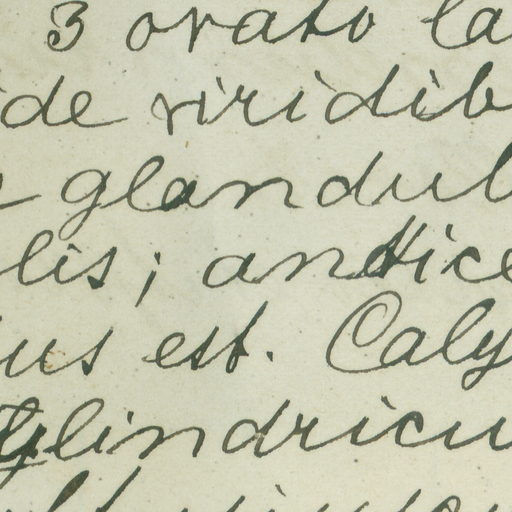 3 ovato la
ide viridib
glandul
lis; antice
ius est. Caly
cylindricu